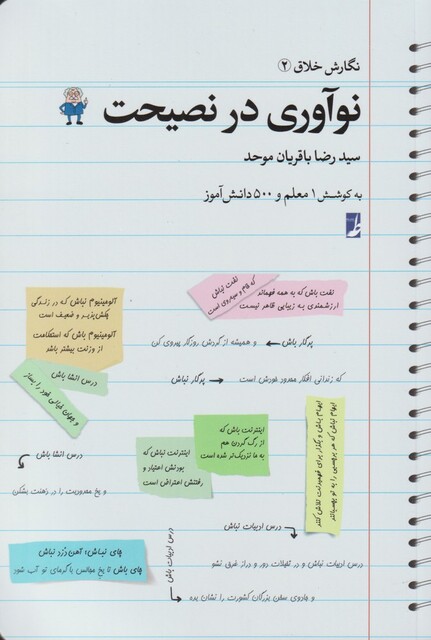 نگارش خلاق ②
نوآوری در نصیحت
سید رضا باقریان موحد
به کوشش ۱ معلم و ۵۰۰ دانش‌آموز
نفت نباش
که خام و سیه‌روی است
نفت باش که به همه فهماند
ارزشمندی به زیبایی ظاهر نیست
آلومینیوم نباش که در زندگی
چکش‌پذیر و ضعیف است
آلومینیوم باش که استقامت
از وزنت بیشتر باشد
پرگار باش
و همیشه از گردش روزگار پیروی کن
پرگار نباش
که زندانی افکار محدود خودش است
درس انشا باش
و جهان خیالی خود را بساز
اینترنت باش که
از رگ گردن هم
به ما نزدیک‌تر شده است
اینترنت نباش که
بودنش اعتیار و
رفتنش اعتراض است
ابهام نباش که هر برچسبی را به تو بچسبانند
ابهام باش و بگذار برای فهمیدنت تلاش کنند
درس انشا باش
و یخ محدودیت را در ذهنت بشکن
درس ادبیات نباش
درس ادبیات نباش و در تخیلات دور و دراز غرق نشو
درس ادبیات باش
و جادوی سخن بزرگان کشورت را نشان بده
چای نباش؛ آهن دُزد نباش
چای باش تا یخ مجالس با گرمای تو آب شود